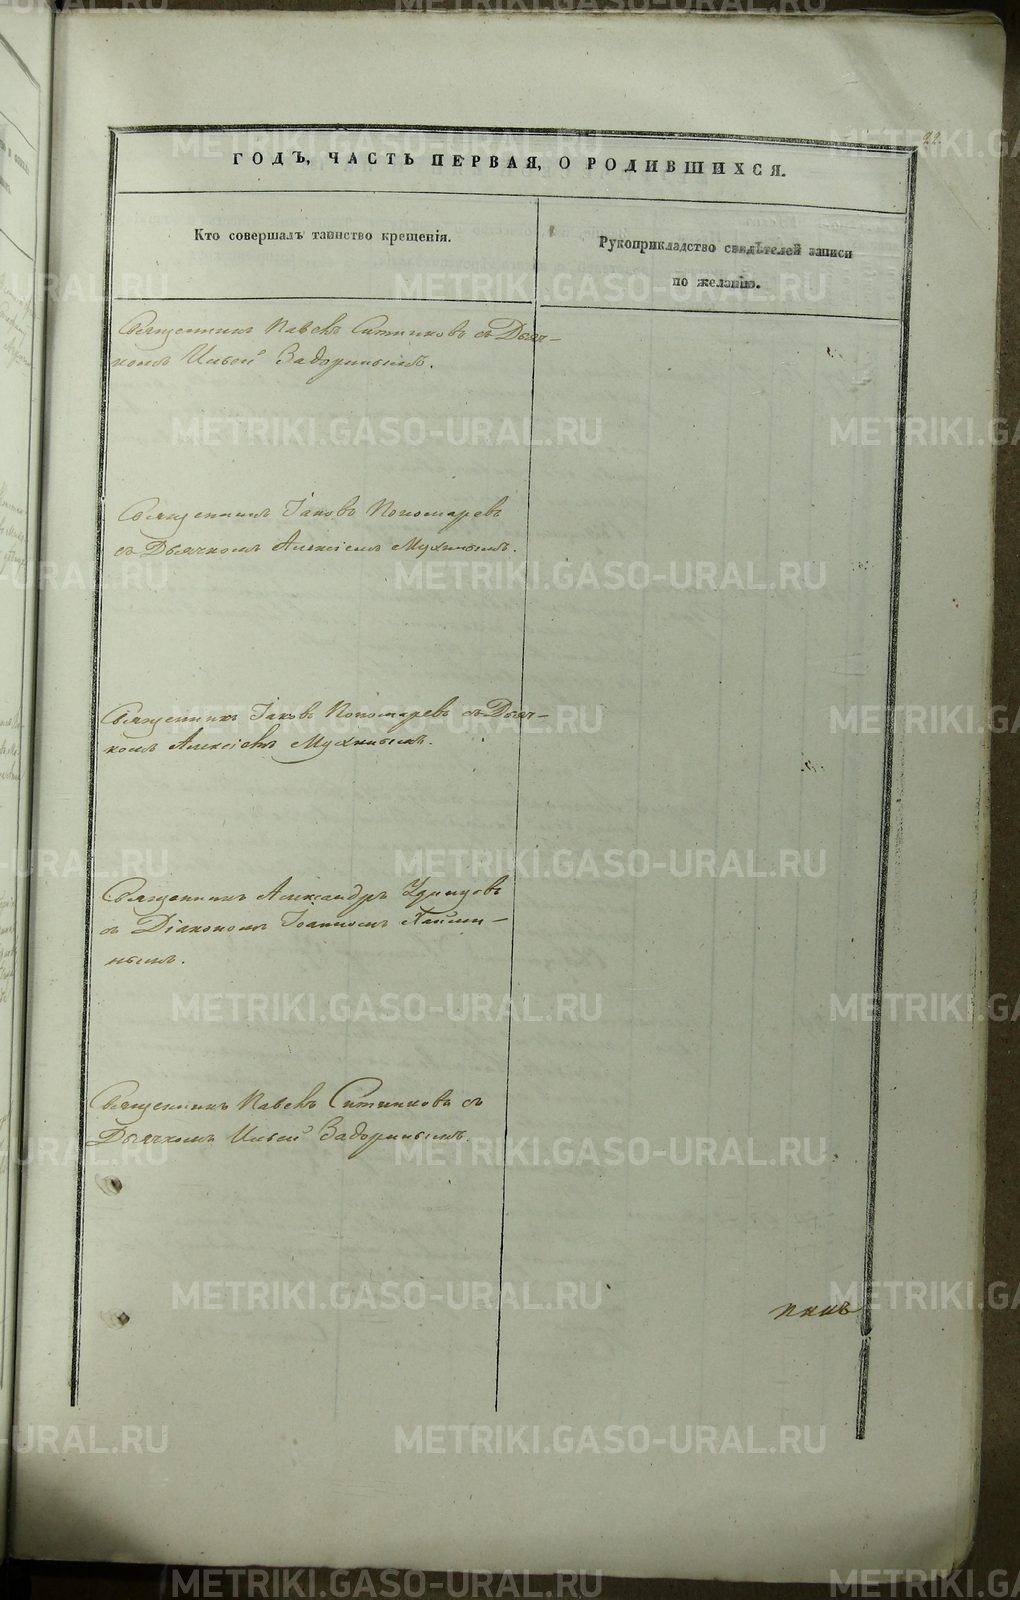 22.
ГОДЪ, ЧАСТЬ ПЕРВАЯ, О РОДИВШИХСЯ.
Кто совершалъ таинство крещенія.
Рукоприкладство свидѣтелей записи
по желанію.
Священникъ Павелъ Ситниковъ съ Дьяч-
комъ Ильей Задоринымъ.
Священникъ Іаковъ Пономаревъ
съ Дьячкомъ Алексіемъ Мухинымъ.
Священникъ Іаковъ Пономаревъ съ Дьяч-
комъ Алексіемъ Мухинымъ.
Священникъ Александръ Удинцовъ
съ Діакономъ Іоанномъ
нымъ.
Священникъ Павелъ Ситниковъ съ
Дьячкомъ Ильей Задоринымъ.
METRIKI.GASO-URAL.RU